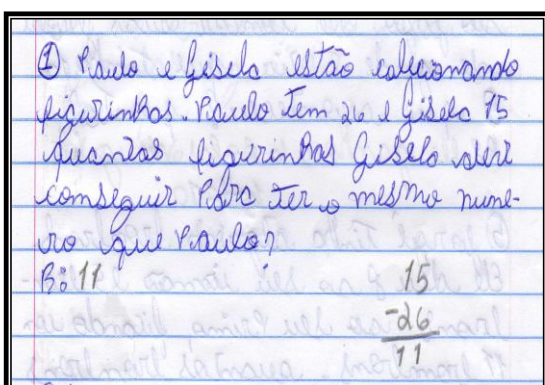 ① Paulo e Gisela estão colecionando
figurinhas. Paulo tem 26 e Gisela 15
quantas figurinhas Gisela deve
conseguir Para ter o mesmo nume-
ro que Paulo?
R: 11
15
-26
11